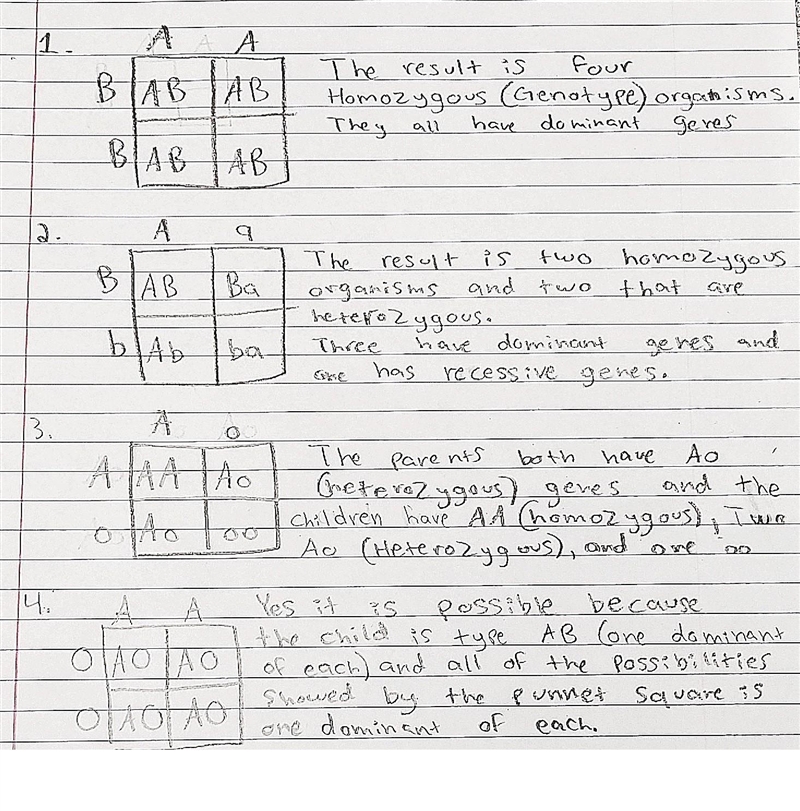 1. A A
B AB AB
B AB AB
The result is four
Homozygous (Genotype) organisms.
They all have dominant genes
2. A a
B AB Ba
b Ab ba
The result is two homozygous
organisms and two that are
heterozygous.
Three have dominant genes and
one has recessive genes.
3. A o
A AA Ao
o Ao oo
The parents both have Ao
(heterozygous) genes and the
children have AA (homozygous), Two
Ao (Heterozygous), and one oo
4. A A
O AO AO
O AO AO
Yes it is possible because
the child is type AB (one dominant
of each) and all of the possibilities
showed by the punnet square is
one dominant of each.